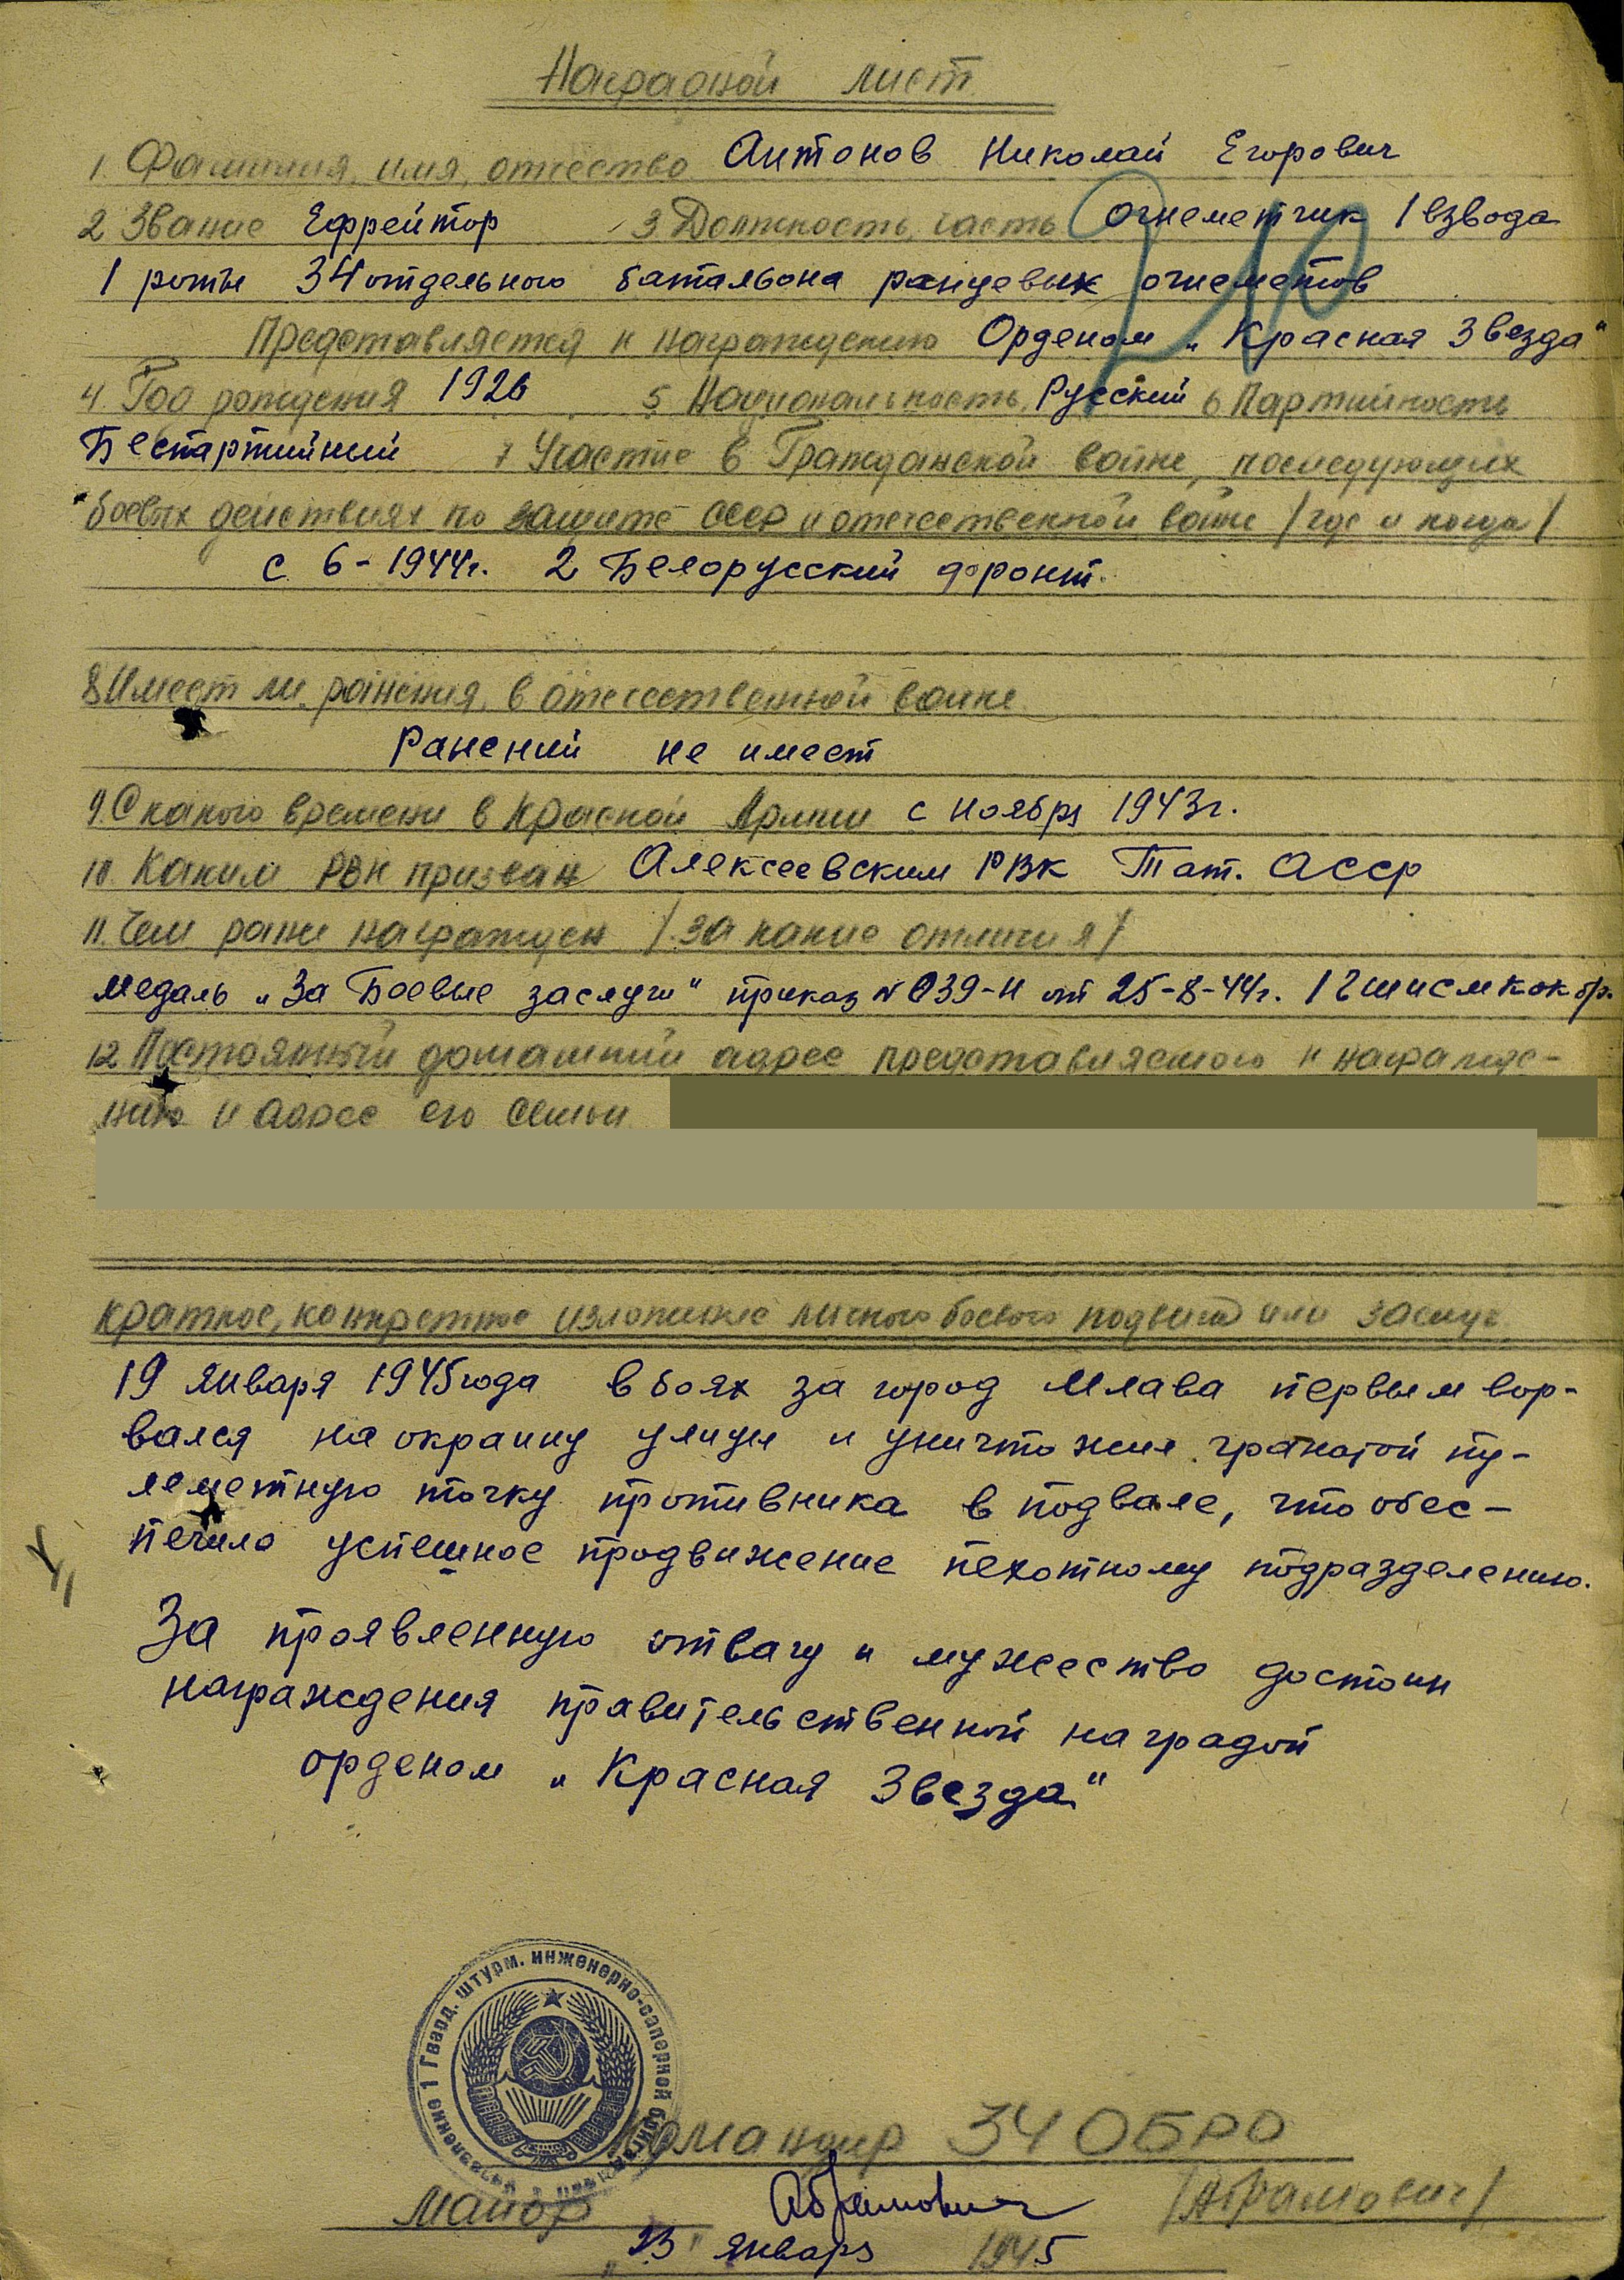 Наградной лист
1. Фамилия, имя, отчество Антонов Николай Егорович
2 Звание Ефрейтор 3 Должность, часть огнеметчик 1 взвода
1 роты 34 отдельного батальона ранцевых огнеметов
Представляется к награждению Орденом „Красная Звезда"
4. Год рождения 1926 5 Национальность Русский 6 Партийность
Беспартийный 7 Участие в Гражданской войне, последующих
боевых действиях по защите СССР и отечественной войне /где и когда/
с 6-1944г. 2 Белорусский фронт.
8 Имеет ли ранения в отечественной войне
Ранений не имеет
9. С какого времени в Красной Армии с ноября 1943г.
10. Каким РВК призван Алексеевским РВК Тат. АССР
11. Чем ранее награжден /за какие отличия/
медаль „За Боевые заслуги" приказ № 039-Н от 25-8-44г. 1 Гшисмкокбр.
12 Постоянный домашний адрес представляемого к награжде-
нию и адрес его семьи
Краткое, конкретное изложение личного боевого подвига или заслуг.
19 января 1945 года в боях за город Млава первым вор-
вался на окраину улицы и уничтожил гранатой пу-
леметную точку противника в подвале, что обес-
печило успешное продвижение пехотному подразделению.
За проявленную отвагу и мужество достоин
награждения правительственной наградой
орденом „Красная Звезда"
1 Гвард. штурм. инженерно-саперной бригады
Командир 34 ОБРО
Майор Абрамович /Абрамович/
„23" января 1945